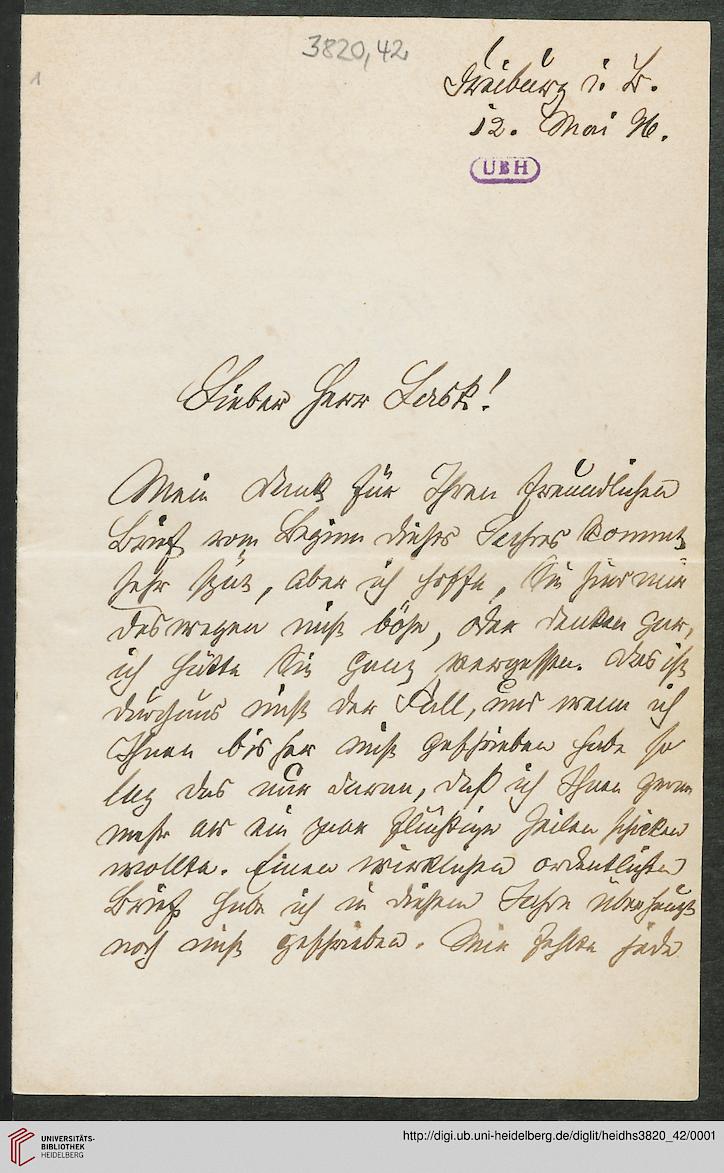 3820,42
1
Freiburg i. B.
12. Mai 96.
UBH
Lieber Herr Lask!
Mein Dank für Ihren freundlichen
Brief vom Beginn dieses Jahres kommt
sehr spät, aber ich hoffe, Sie sind mir
deswegen nicht böse, oder denken gar,
ich hätte Sie ganz vergessen. Das ist
durchaus nicht der Fall, und wenn ich
Ihnen bisher nicht geschrieben habe so
lag das nur daran, daß ich Ihnen gerne
mehr als ein paar flüchtige Zeilen schicken
wollte. Einen wirklichen ordentlichen
Brief habe ich in diesem Jahre überhaupt
noch nicht geschrieben. Mir fehlte jede
UNIVERSITÄTS-
BIBLIOTHEK
HEIDELBERG
http://digi.ub.uni-heidelberg.de/diglit/heidhs3820_42/0001